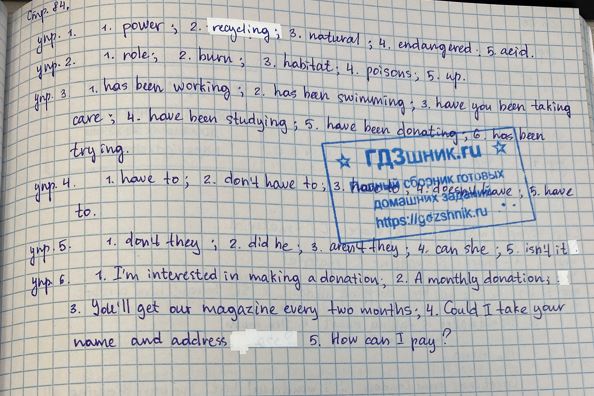 Стр. 84.
упр. 1. 1. power; 2. recycling; 3. natural; 4. endangered. 5. acid.
упр. 2. 1. role; 2. burn; 3. habitat; 4. poisons; 5. up.
упр. 3 1. has been working; 2. has been swimming; 3. have you been taking
care; 4. have been studying; 5. have been donating; 6. has been
trying.
упр. 4. 1. have to; 2. don't have to; 3. have to; 4. doesn't have; 5. have
to.
упр. 5. 1. don't they; 2. did he; 3. aren't they; 4. can she; 5. isn't it
упр. 6. 1. I'm interested in making a donation, 2. A monthly donation;
3. You'll get our magazine every two months; 4. Could I take your
name and address 5. How can I pay?
ГДЗшник.ru
сборник готовых
домашних заданий
https://gdzshnik.ru